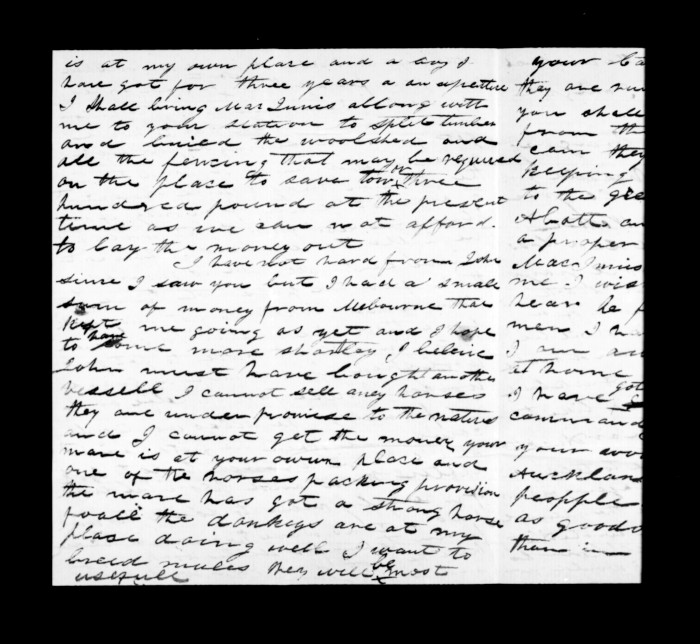 is at my own place and a boy I
have got for three years a
I Shall bring Mac Innis allong with
me to your station to split timber
and buied the woolshed and
all the fencing that may be required
on the place to save tow or three
hundered pound at the present
time as we can not afford.
to lay the money out
I have not hard from John
since I saw you but I had a small
sum of money from Melbourne that
Kept me going as yet and I hope
to have some more shortley I beleive
John must have bought another
vessell I cannot sell aney horses
they are under promise to the natives
and I cannot get the money your
mare is at your owen place and
one of the horses packing provision
the mare has got a strong horse
foall the donkeys are at my
place doing well I want to
breed mules they will be most
usefull
your
they are
you shall
from the
can they
Keeping
to the
Abott an
a proper
Mac Innis
me. I wis
hear he
men I
I am an
at home
I have got
command
your
Auckland
peopple
as good
than in